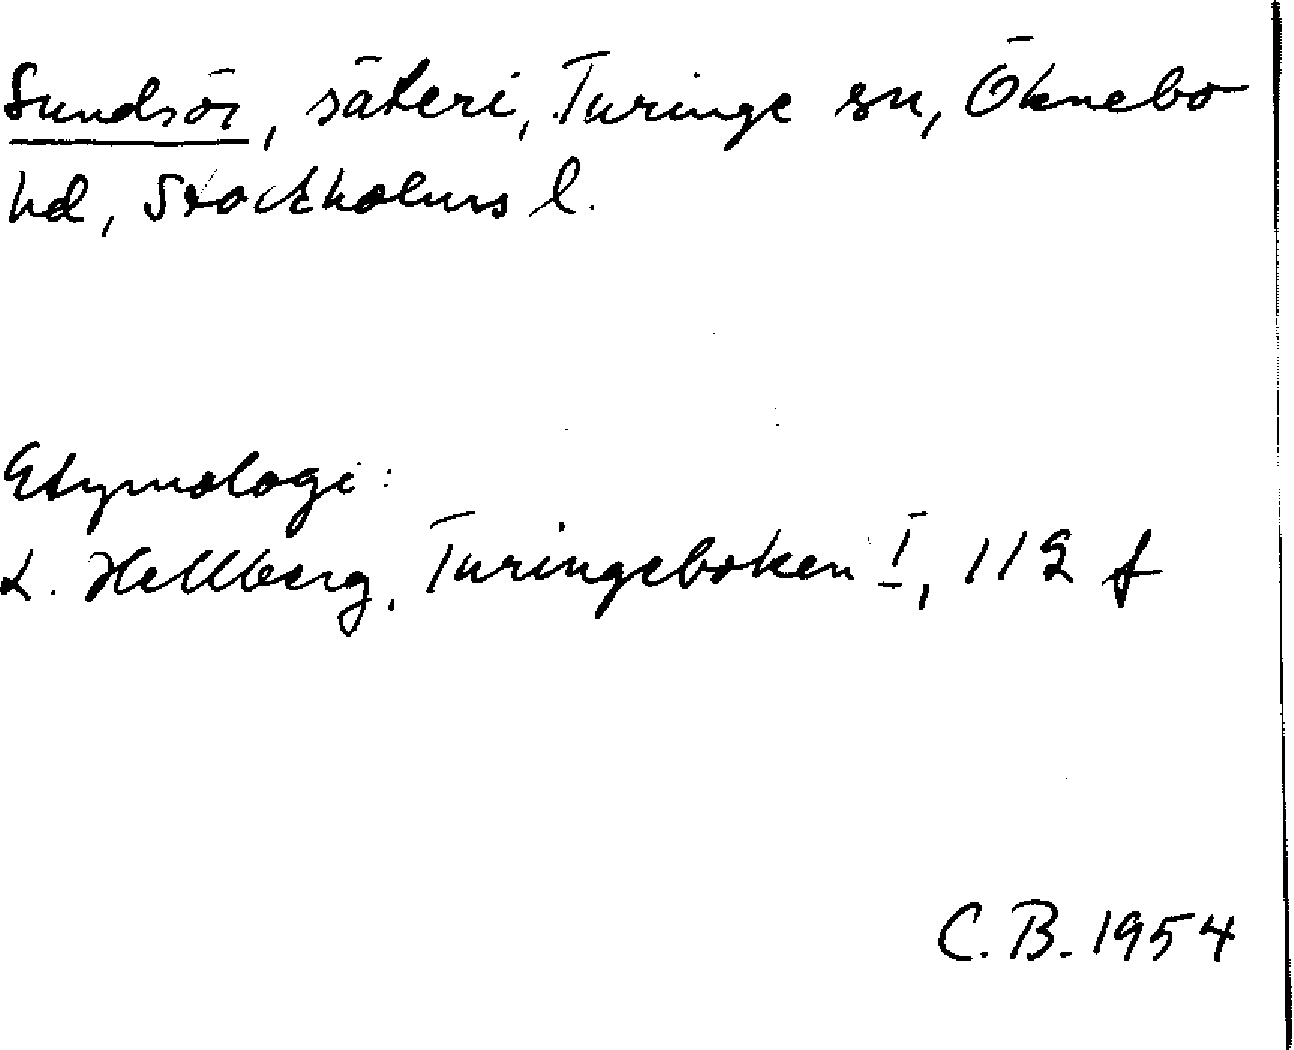 Sundsör, säteri, Turinge sn, Öknebo
hd, Stockholms l.
Etymologi:
L. Hellberg, Turingeboken I, 112 f
C.B. 1954